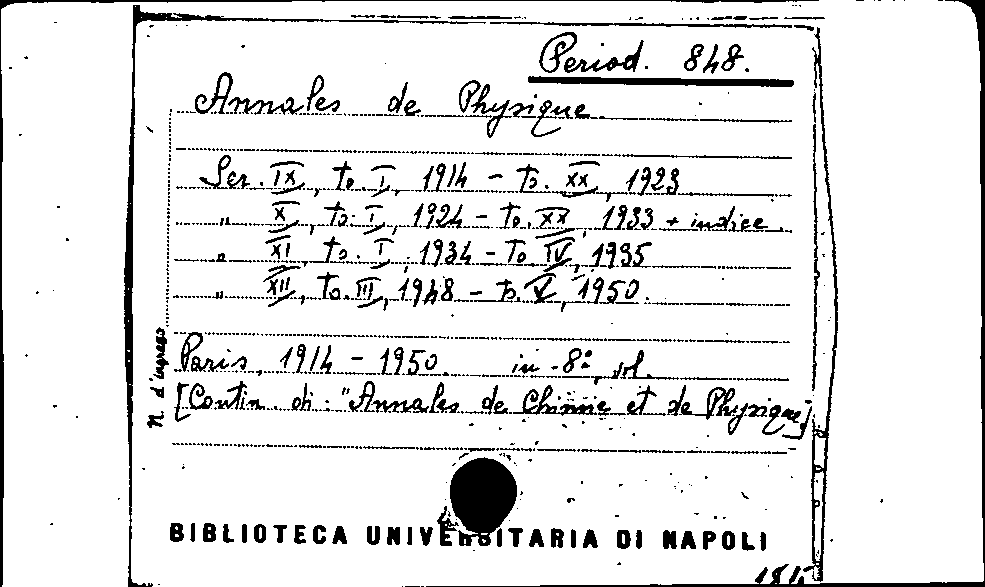 Period. 848.
Annales de Physique
Ser. IX, to. I, 1914 - to. XX, 1923
" X, to. I, 1924 - to. XX, 1933 + indice.
" XI, to. I, 1934 - to. IV, 1935
" XII, to. III, 1948 - to. V, 1950.
Paris, 1914 - 1950. in -8°, vol.
[Contin. di: "Annales de Chimie et de Physique]
N. d'ingresso
BIBLIOTECA UNIVERSITARIA DI NAPOLI